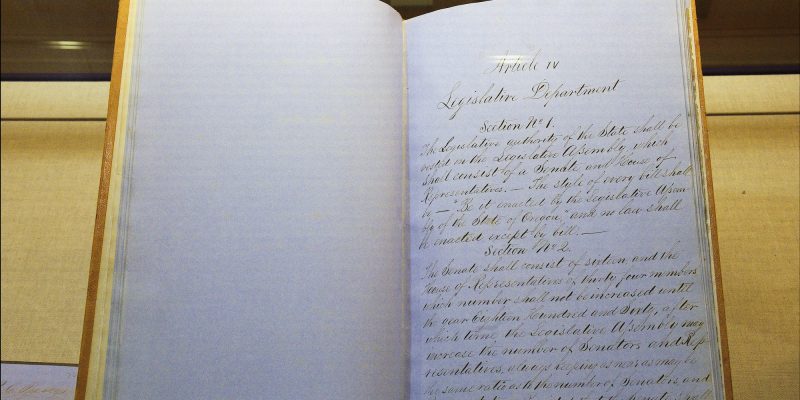 Article IV
Legislative Department
Section No 1.
The Legislative authority of the State shall be
vested in the Legislative Assembly, which
shall consist of a Senate and House of
Representatives. — The style of every bill shall
be — "Be it enacted by the Legislative Assem-
bly of the State of Oregon," and no law shall
be enacted except by bill. —
Section No 2.
The Senate shall consist of sixteen, and the
House of Representatives of thirty four members,
which number shall not be increased until
the year Eighteen Hundred and Sixty, after
which time, the Legislative Assembly may
increase the number of Senators and Rep-
resentatives, always keeping as near as may be
the same ratio as to the number of Senators, and
shall